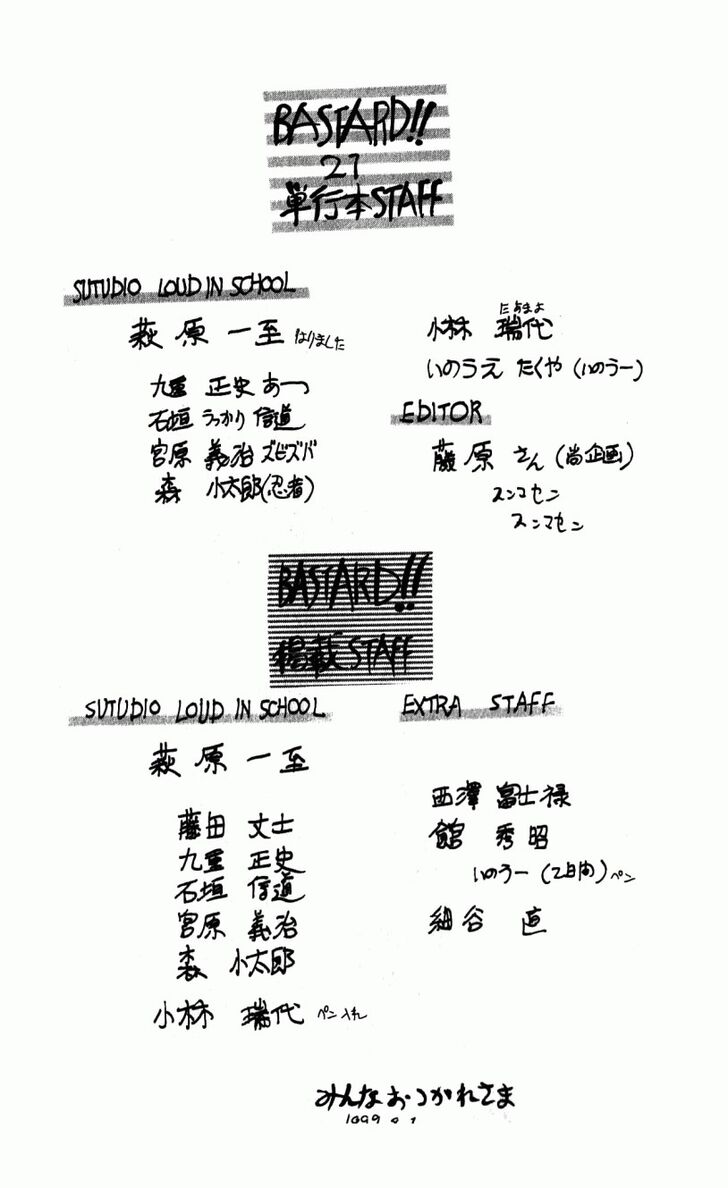 BASTARD!!
21
単行本STAFF
SUTUDIO LOUD IN SCHOOL
萩原 一至 はりました
九重 正史 あーつ
石垣 うっかり 信道
宮原 義治 ズビズバ
森 小太郎(忍者)
小林 瑞代
いのうえ たくや (いのうー)
EDITOR
藤原 さん (尚企画)
スンマセン
スンマセン
BASTARD!!
掲載STAFF
SUTUDIO LOUD IN SCHOOL
萩原 一至
藤田 丈士
九重 正史
石垣 信道
宮原 義治
森 小太郎
小林 瑞代 ペン入れ
EXTRA STAFF
西澤 富士禄
館 秀昭
いのうー (2日間) ペン
細谷 直
みんなおつかれさま